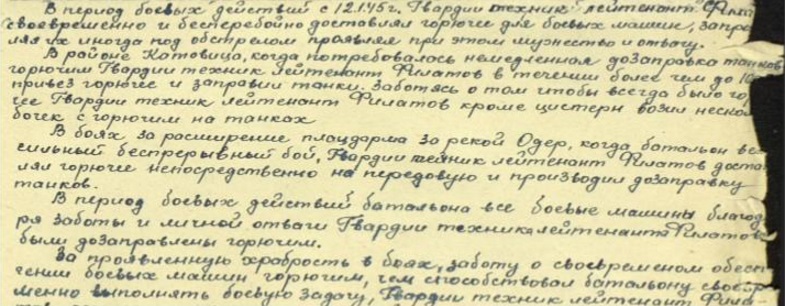 В период боевых действий с 12.1.45г. Гвардии техник лейтенант Фила
своевременно и бесперебойно доставлял горючее для боевых машин, запра
ляя их иногда под обстрелом проявляя при этом мужество и отвагу.
В районе Катовица, когда потребовалась немедленная дозаправка танков
горючим Гвардии техник лейтенант Филатов в течении более чем до
привез горючее и заправил танки. Заботясь о том чтобы всегда было гор
чее Гвардии техник лейтенант Филатов кроме цистерн возил неско
бочек с горючим на танках
В боях за расширение плацдарма за рекой Одер, когда батальон ве
сильный беспрерывный бой, Гвардии техник лейтенант Филатов доста
лял горючее непосредственно на передовую и производил дозаправку
танков.
В период боевых действий батальона все боевые машины благод
ря заботы и личной отваги Гвардии техника лейтенанта Филатова
были дозаправлены горючим.
За проявленную храбрость в боях, заботу о своевременом обесп
гении боевых машин горючим, чем способствовал батальону своевр
менно выполнять боевую задачу, Гвардии техник лейтенант Фила